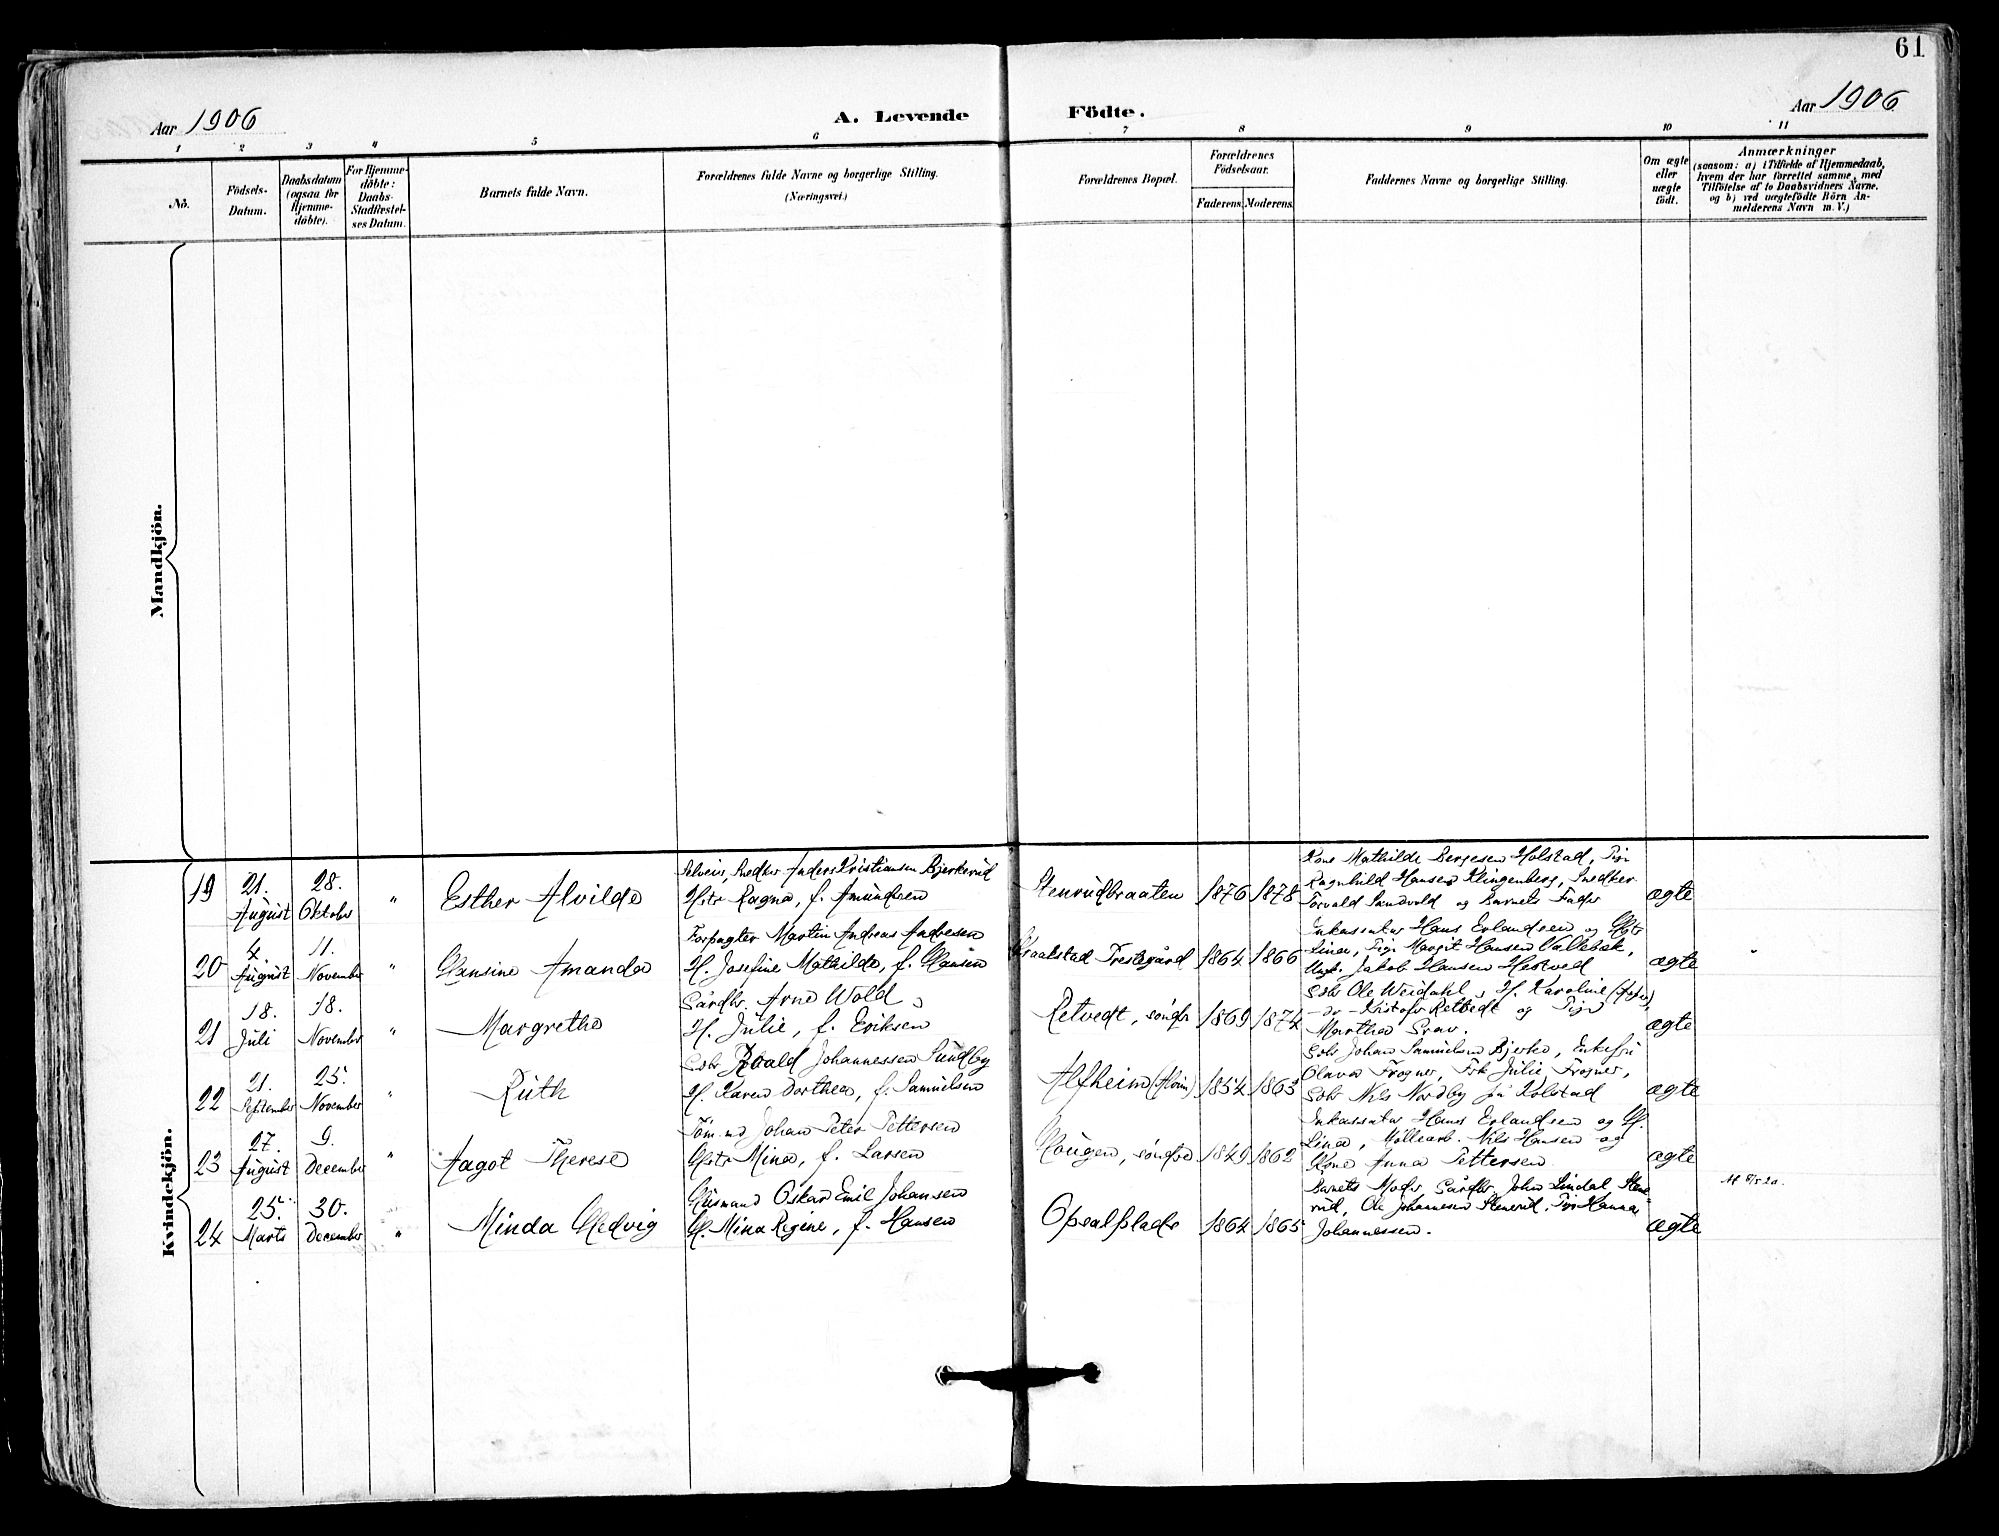 61
Aar 1906
A. Levende
Födte.
Aar 1906
1 2 3 4 5 6 7 8 9 10 11
No.
Födsels-Datum.
Daabsdatum (ogsaa for Hjemme-döbte).
For Hjemme-döbte: Daabs-Stadfæstel-ses Datum.
Barnets fulde Navn.
Forældrenes fulde Navne og borgerlige Stilling.
(Næringsvei.)
Forældrenes Bopæl.
Forældrenes Födselsaar.
Faderens. Moderens.
Faddernes Navne og borgerlige Stilling.
Om ægte eller uægte födt.
Anmærkninger
(saasom: a) i Tilfælde af Hjemmedaab,
hvem der har forrettet samme, med
Tilföielse af to Daabsvidners Navne.
og b) ved uægtefödte Börn An-
melderens Navn m. V.)
Mandkjön.
Kvindekjön.
19
21. August
28. Oktober
"
Esther Alvilde
Selveier, Snedker Anders Kristiansen Bjerkerud
Hstr Ragna, f. Amundsen
Stenrudbraaten
1876 1878
Kone Mathilde Bergesen Holstad, Pige
Ragnhild Hansen Klingenberg, Snedker
Torvald Sandvold og Barnets Fader
ægte
20
4. August
11. November
"
Hansine Amanda
Forpagter Martin Andreas Andresen
H. Josefine Mathilde, f. Hansen
Kraakstad Prestegård
1864 1866
Inkassator Hans Erlandsen og Hstr
Lina, Pige Margit Hansen Vallebæk,
Ungk. Jakob Hansen Hestved
ægte
21
18. Juli
18. November
"
Margrethe
Gårdbr Arne Wold
H. Julie, f. Eriksen
Retvedt, söndre
1869 1874
Gbr Ole Weidahl, H. Karoline
-do- Kristofer Retvedt og Pige
Marthea
ægte
22
21. September
25. November
"
Ruth
Gbr Roald Johannessen Sundby
H. Karen Dorthea, f. Samuelsen
Alfheim
1854 1863
Gbr Johan Samuelsen Bjerke, Enkefru
Olava Frogner, Frk Julie Frogner,
Gbr Nils Nordby på Holstad
ægte
23
27. August
9. December
"
Aagot Therese
Töm.md Johan Peter Pettersen
Hstr Mina, f. Larsen
Haugen, söndre
1849 1862
Inkassator Hans Erlandsen og H.
Lina, Möllearb. Nils Hansen og
Kone Anna Pettersen
ægte
24
25. Marts
30. December
"
Minda Hedvig
Husmand Oskar Emil Johansen
H. Mina Regine, f. Hansen
Opsalplads
1864 1865
Barnets Moder, Gårdbr. John Lindal Sten-
rud, Ole Johannesen Stenrud, Pige Hanna
Johannessen.
ægte